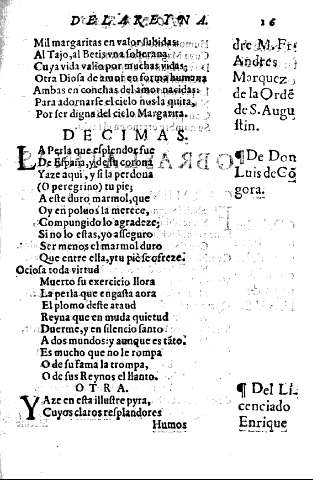 DE LA REINA. 16
Mil margaritas en valor subidas:
Al Tajo, al Betis vna soberana,
Cuya vida valio por muchas vidas;
Otra Diosa de amor en forma humana
Ambas en conchas del amor nacidas:
Para adornarse el cielo nos la quita,
Por ser digna del cielo Margarita.
dre M. Fr
Andres
Marquez
de la Ordē
de S. Augu
stin.
DECIMAS.
LA Perla que esplendor fue
De España, y de su corona
Yaze aqui, y si la perdona
(O peregrino) tu pie;
A este duro marmol, que
Oy en poluos la merece,
Compungido lo agradeze;
Si no lo estas, yo asseguro
Ser menos el marmol duro
Que entre ella, y tu pie se ofreze.
¶ De Don
Luis de Cō
gora.
Ociosa toda virtud
Muerto su exercicio llora
La perla que engasta aora
El plomo deste ataud
Reyna que en muda quietud
Duerme, y en silencio santo
A dos mundos: y aunque es tāto.
Es mucho que no le rompa
O de su fama la trompa,
O de sus Reynos el llanto.
OTRA.
YAze en esta illustre pyra,
Cuyos claros resplandores
Humos
¶ Del Li-
cenciado
Enrique